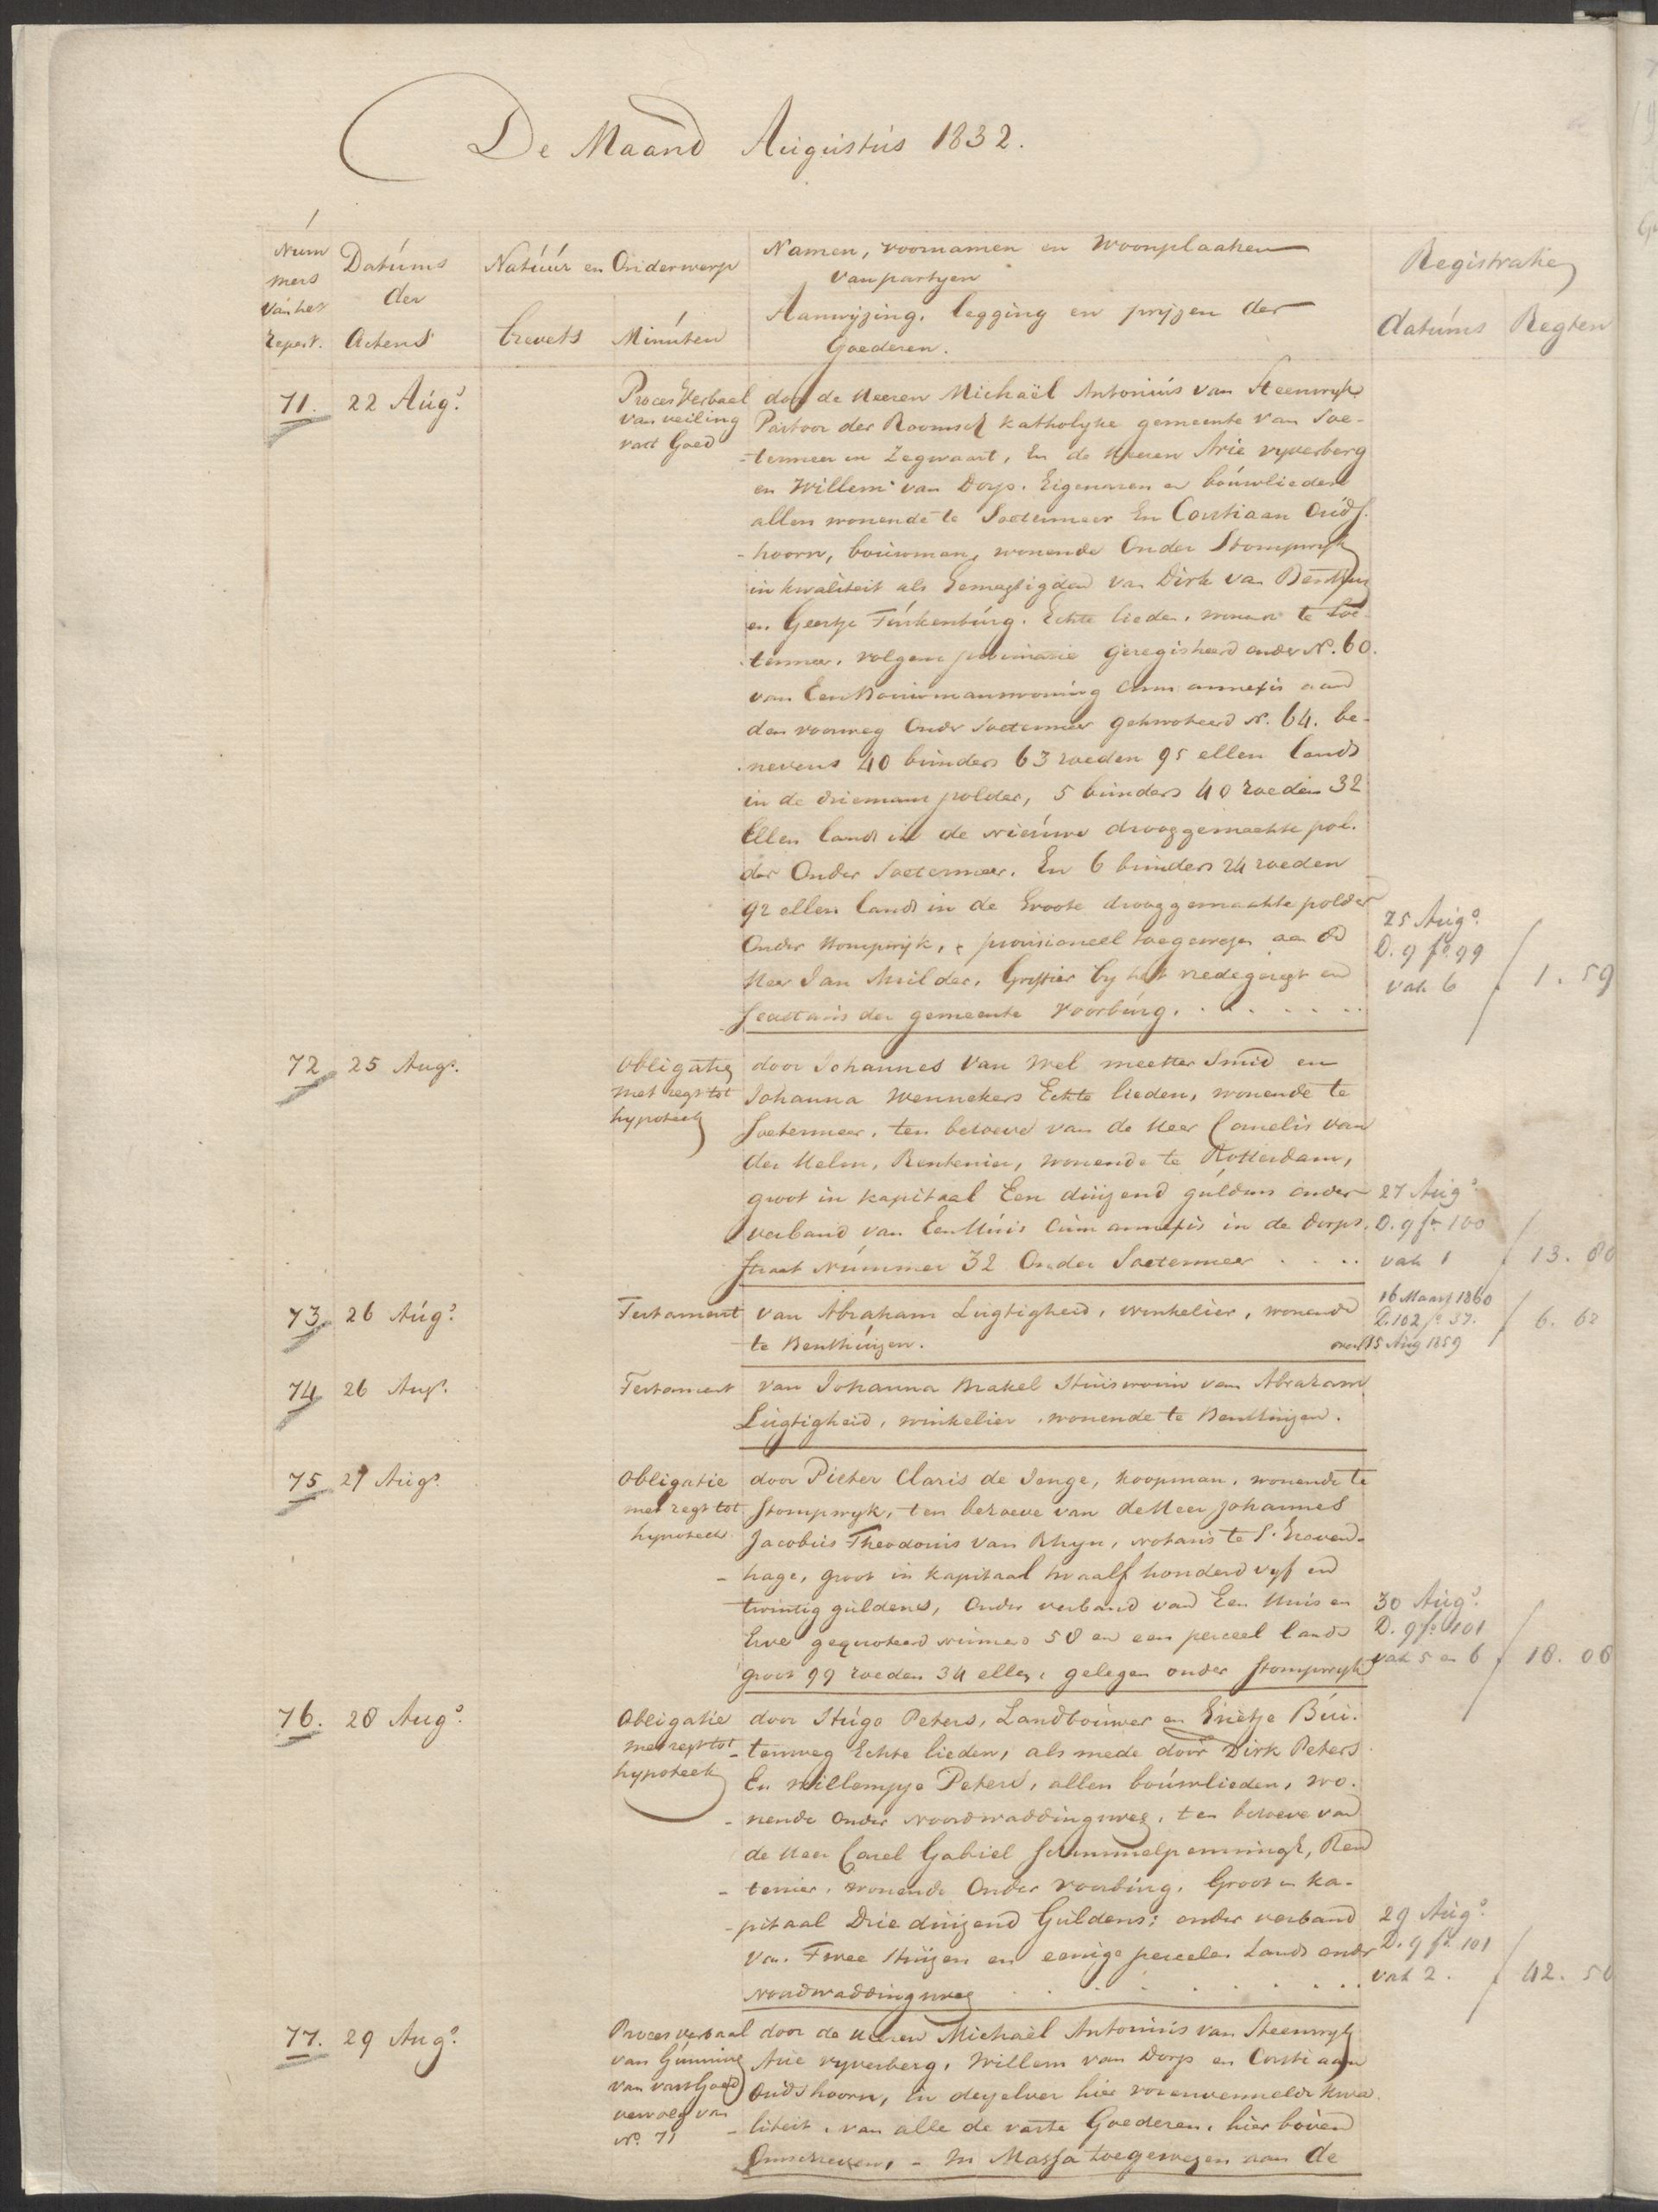 De Maand Augustus 1832.
Num
mers
van het
Repert.
Datums
der
Actens
Natuur en Onderwerp
brevets
Minuten
Namen, voornamen en Woonplaatsen
van partyen
Aanwyzing, legging en pryzen der
Goederen.
Registratie
datums
Regten
71.
22 Augs.
Proces Verbaal
van veiling
vast Goed
door de Heeren Michaël Antonius van Steenwyk
Pastoor der Roomsch katholyke gemeente van Soe-
-termeer en Zegwaart, En de Heeren Arie vyverberg
en Willem van Dorp. Eigenaren en bouwlieden
allen wonende te Soetermeer En Corstiaan Ouds-
-hoorn, bouwman, wonende Onder Stompwyk
in kwaliteit als gemagtigden van Dirk van Benthem
en Geertje Finkenburg. Echte lieden, wonende te Soe-
-termeer, volgens procuratie geregistreerd onder No. 60.
van Een Bouwmanswoning Cum annexis aan
den voorweg Onder Soetermeer gekwoteerd N. 64. be-
-nevens 40 bunders 63 roeden 95 ellen lands
in de driemans polder, 5 bunders 40 roeden 32
Ellen lands in de nieuwe drooggemaakte pol-
der Onder Soetermeer. En 6 bunders 24 roeden
92 ellen lands in de Groote drooggemaakte polder
Onder Stompwyk, provisioneel toegewezen aan de
Heer Jan Mulder, Griffier by het vredegeregt en
Secretaris der gemeente Voorburg. . . . . . .
25 Augs.
D. 9 fo. 99
vak 6
1. 59
72
25 Augs.
Obligatie
met regt tot
hypoteek
door Johannes van Wel meester Smid en
Johanna Wennekers Echte lieden, wonende te
Soetermeer, ten behoeve van de Heer Cornelis van
der Helm, Rentenier, wonende te Rotterdam,
groot in kapitaal Een duizend guldens onder
verband van Een Huis Cum annexis in de dorps-
straat Nummer 32 Onder Soetermeer . . . .
27 Augs.
D. 9 fo. 100
vak 1
13. 80
73.
26 Augs.
Testament
van Abraham Lugtigheid, winkelier, wonende
te Benthuizen.
16 Maart 1860
D. 102 fo. 57.
overl. 15 Aug 1859
6. 62
74
26 Augs.
Testament
van Johanna Brakel Huisvrouw van Abraham
Lugtigheid, winkelier, wonende te Benthuizen.
75
27 Augs.
Obligatie
met regt tot
hypoteek
door Pieter Claris de Jonge, koopman, wonende te
Stompwyk, ten behoeve van de Heer Johannes
Jacobus Theodorus van Rhyn, notaris te S. Graven-
-hage, groot in kapitaal twaalf honderd vyf en
twintig guldens, Onder verband van Een Huis en
Erve gequoteerd numero 58 en een perceel lands
groot 99 roeden 34 ellen, gelegen onder Stompwyk
30 Augs.
D. 9 fo. 101
vak 5 en 6
18. 06
76.
28 Augs.
Obligatie
met regt tot
hypoteek
door Hugo Peters, Landbouwer en Grietje Bui-
-tenweg Echte lieden, als mede door Dirk Peters
En Willempje Peters, allen bouwlieden, wo-
-nende Onder Noordwaddingsveen, ten behoeve van
de Heer Carel Gabriel Schimmelpenningh, Ren
-tenier, wonende Onder Voorburg, Groot in ka-
-pitaal Drie duizend Guldens; onder verband
van Twee Huizen en eenige perceelen Lands onder
Noordwaddingsveen . . . . . . . .
29 Augs.
D. 9 fo. 101
vak 2.
42. 50
77.
29 Augs.
Proces verbaal
van Gunning
van vast Goed
vervolg van
No. 71
door de Heeren Michaël Antonius van Steenwyk
Arie vyverberg, Willem van Dorp en Corstiaan
Oudshoorn, in dezelver hier vorenvermelde kwa-
-liteit, van alle de vaste Goederen, hier boven
Omschreven, - In Massa toegewezen aan de